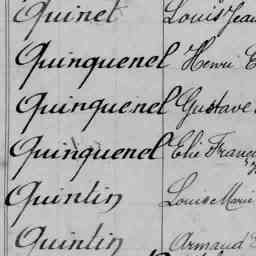 Quinet Louis Jean
Quinquenel Henri E
Quinquenel Gustave
Quinquenel Elie Franç
Quintin Louise Marie
Quintin Armand